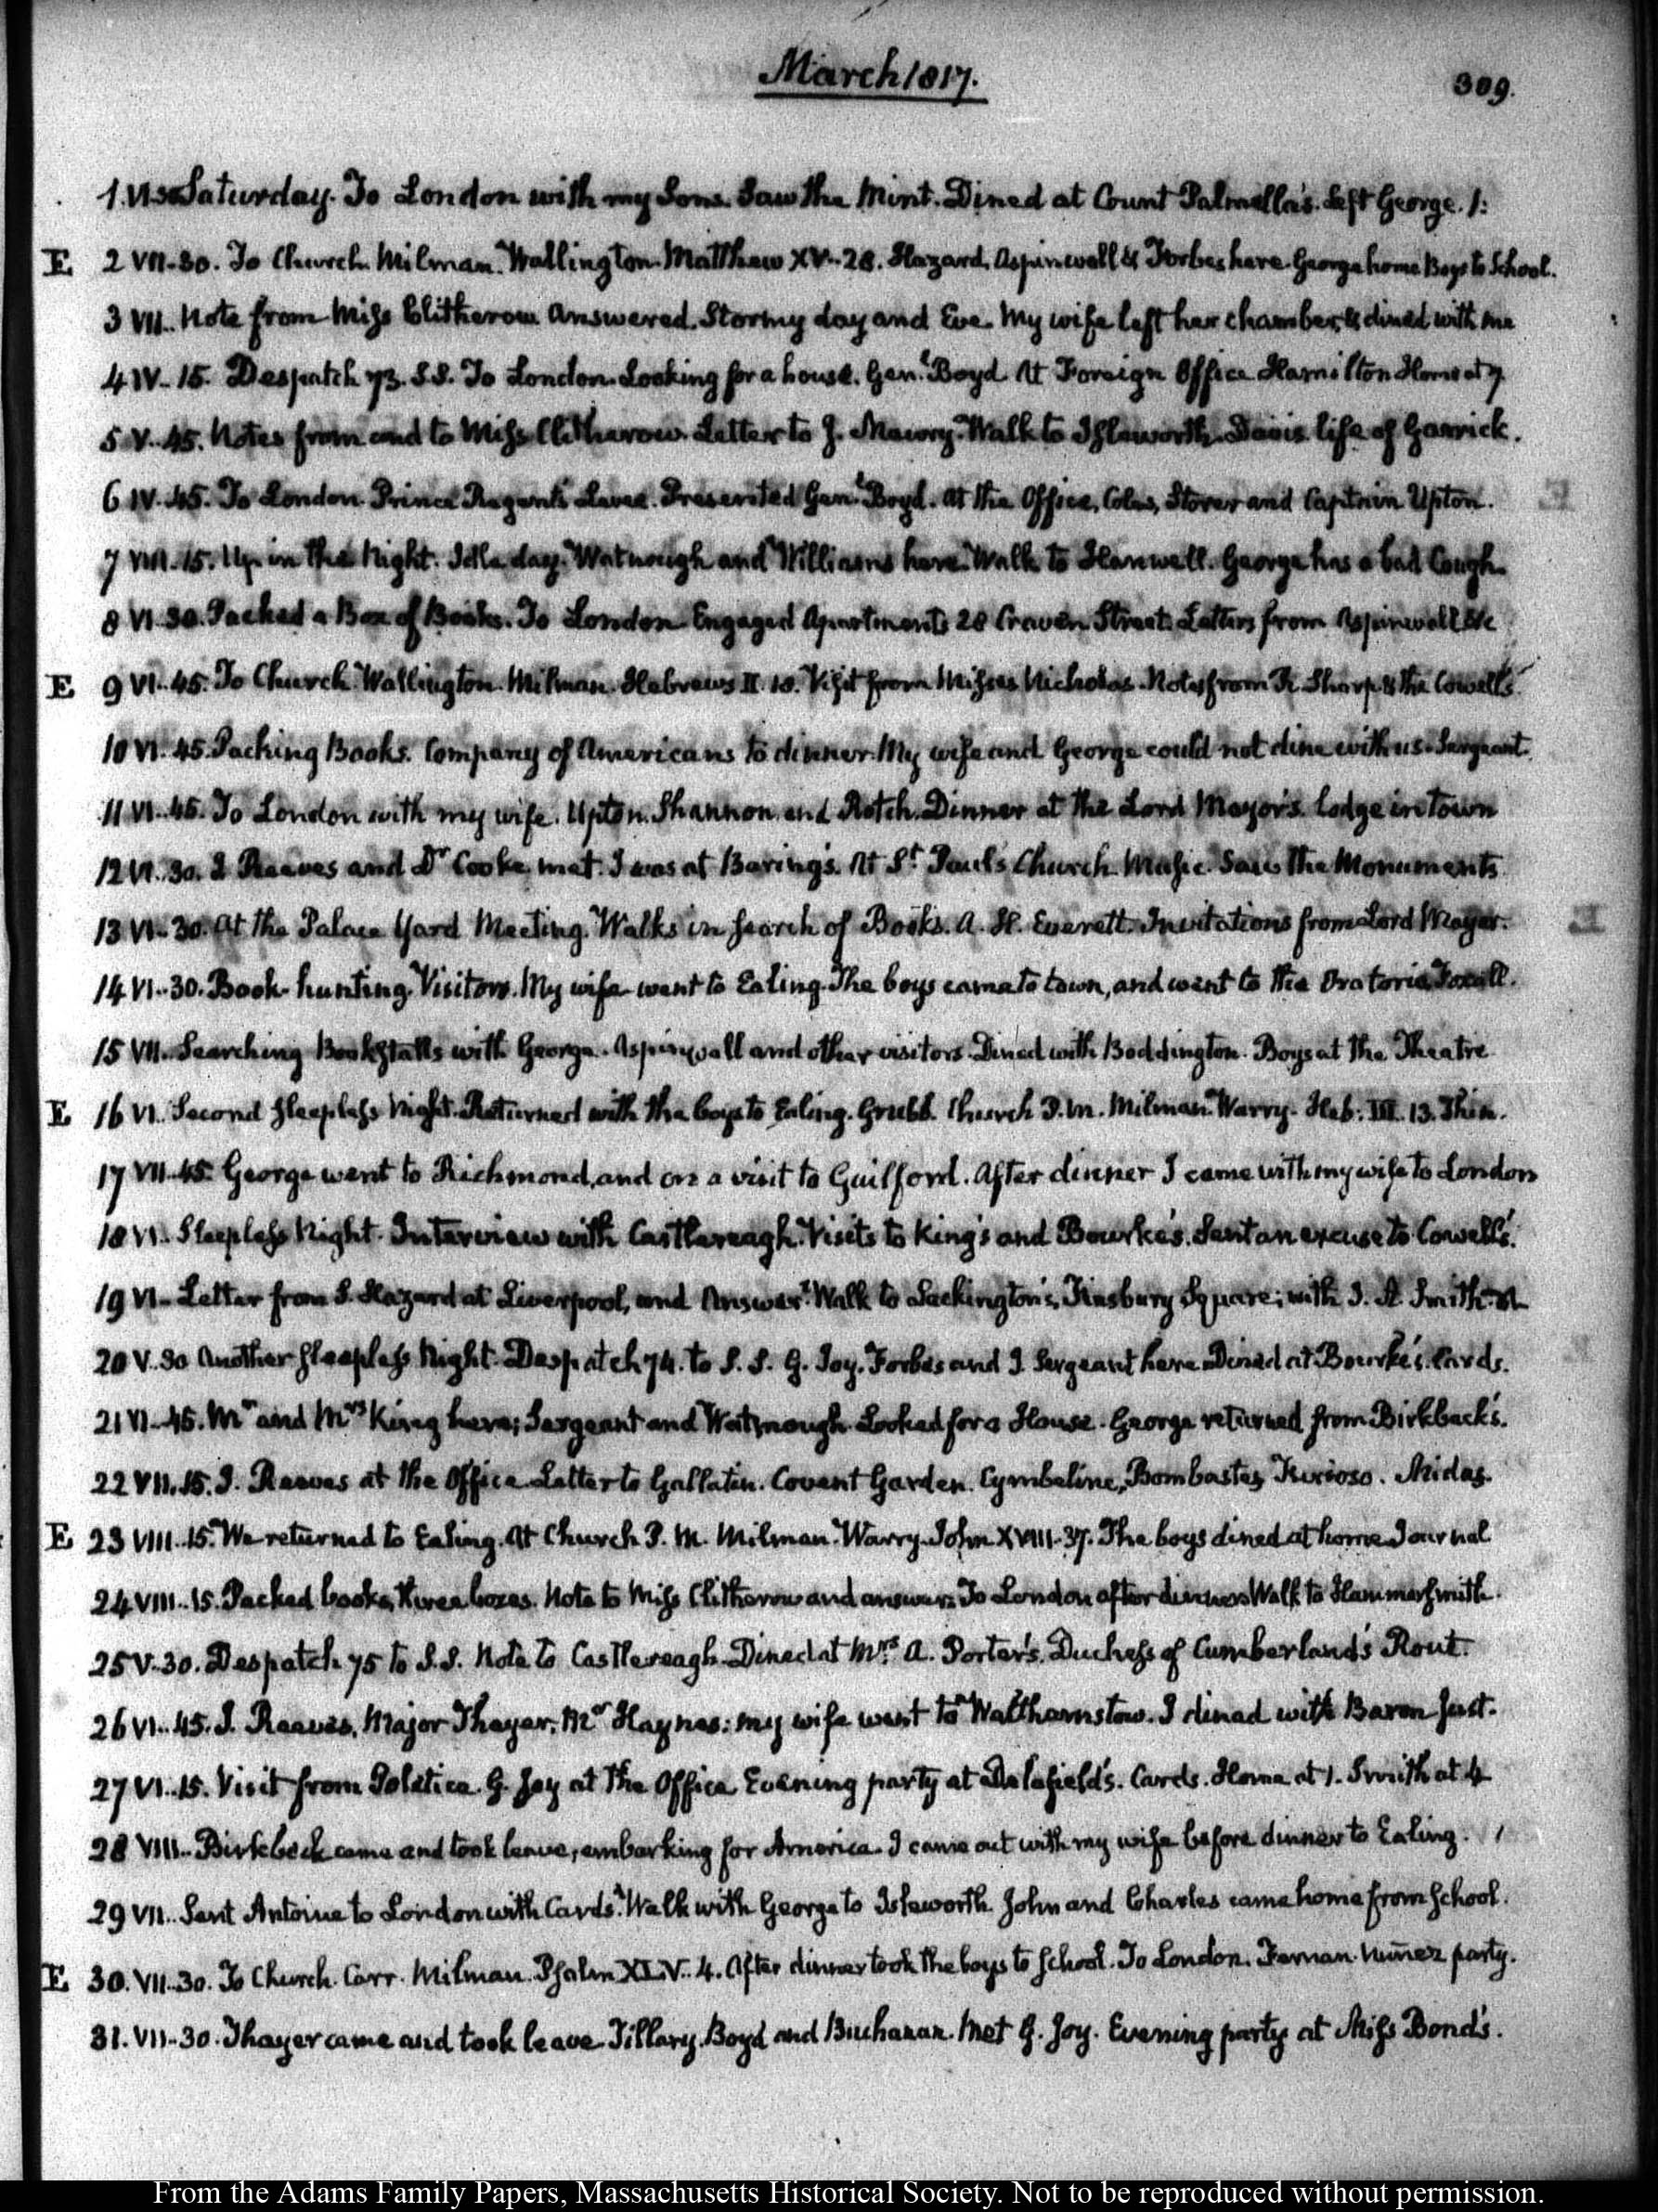 March 1817.
309.
1. VI.30 Saturday. To London with my Sons. Saw the Mint. Dined at Count Palmella's. Left George. 1:
E 2 VII.30. To Church. Milman. Wallington. Matthew XV. 28. Hazard, Aspinwall & Forbes here. George home Boys to School.
3 VII.. Note from Miss Clitherow Answered. Stormy day and Eve. My wife left her chamber, & dined with me
4 IV. 15. Despatch 73. S.S. To London. Looking for a house. Genl. Boyd. At Foreign Office Hamilton Home at 7
5 V. 45. Notes from and to Miss Clitherow. Letter to J. Maury. Walk to Isleworth. Davis life of Garrick.
6 IV. 45. To London. Prince Regent's Levee. Presented Genl. Boyd. At the Office, Coles, Storer and Captain Upton.
7 VIII. 15. Up in the Night. Idle day. Watmough and Williams here. Walk to Hanwell. George has a bad Cough.
8 VI. 30. Packed a Box of Books. To London Engaged Apartments 28 Craven Street. Letters from Aspinwall &c
E 9 VI. 45. To Church. Wallington. Milman. Hebrews II. 10. Visit from Misses Nicholas. Notes from R. Sharp & the Cowells
10 VI. 45. Packing Books. Company of Americans to dinner. My wife and George could not dine with us. Sergeant.
11 VI. 45. To London with my wife. Upton. Shannon and Rotch. Dinner at the Lord Mayor's. Lodge in town
12 VI. 30. J Reeves and Dr Cooke met. I was at Baring's. At St. Paul's Church. Music. Saw the Monuments
13 VI. 30. At the Palace Yard Meeting. Walks in search of Books. A. H. Everett. Invitations from Lord Mayor.
14 VI.. 30. Book-hunting. Visitors. My wife went to Ealing. The boys came to town, and went to the Oratorio. Foxall.
15 VII. Searching Bookstalls with George. Aspinwall and other visitors. Dined with Boddington. Boys at the Theatre
E 16 VI. Second sleepless Night. Returned with the boys to Ealing. Grubb. Church P.M. Milman. Warry. Heb: III. 13. Thin.
17 VII. 45. George went to Richmond, and on a visit to Guilford. After dinner I came with my wife to London
18 VI. Sleepless Night. Interview with Castlereagh. Visits to King's and Bourke's. Sent an excuse to Cowell's.
19 VI. Letter from S. Hazard at Liverpool, and Answer. Walk to Lackington's, Finsbury Square; with J. A. Smith.
20 V. 30 Another sleepless Night. Despatch 74. to S. S. G. Joy. Forbes and J. Sergeant here. Dined at Bourke's. Cards.
21 VI. 45. Mr and Mrs King here; Sergeant and Watmough. Looked for a House. George returned from Birkbeck's.
22 VII. 15. J. Reeves at the Office. Letter to Gallatin. Covent Garden. Cymbeline, Bombastes Furioso. Midas.
E 23 VIII. 15. We returned to Ealing. At Church P. M. Milman. Warry. John XVIII. 37. The boys dined at home. Journal
24 VIII. 15. Packed books, three boxes. Note to Miss Clitherow and answer. To London after dinner. Walk to Hammersmith.
25 V. 30. Despatch 75 to S.S. Note to Castlereagh. Dined at Mrs. A. Porter's. Duchess of Cumberland's Rout.
26 VI. 45. J. Reeves, Major Thayer, Mr Haynes: my wife went to Walthamstow. I dined with Baron Just.
27 VI. 15. Visit from Poletica. G. Joy at the Office. Evening party at Delafield's. Cards. Home at 1. Smith at 4
28 VIII.. Birkbeck came and took leave, embarking for America. I came out with my wife before dinner to Ealing.
29 VII.. Sent Antoine to London with Cards. Walk with George to Isleworth. John and Charles came home from School.
E 30. VII..30. To Church. Carr. Milman. Psalm XLV. 4. After dinner took the boys to school. To London. Fernan-Nuñez party.
31. VII.30. Thayer came and took leave. Tillary. Boyd and Buchanan. Met G. Joy. Evening party at Miss Bond's.
From the Adams Family Papers, Massachusetts Historical Society. Not to be reproduced without permission.